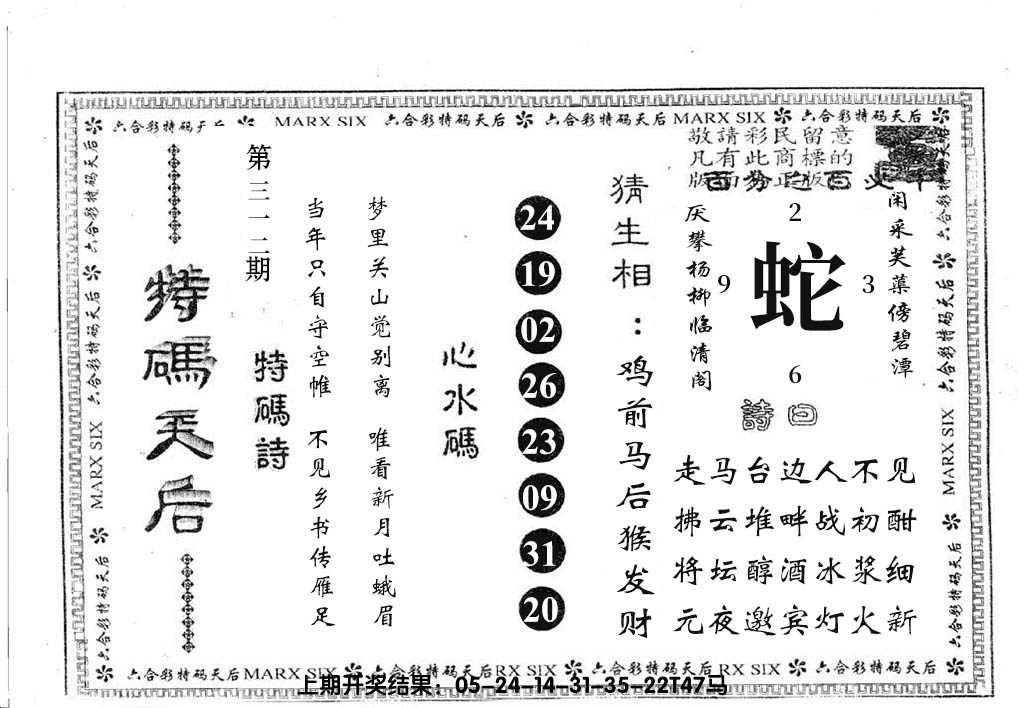 六合彩特码
MARX SIX
六合彩特码天后
六合彩特码天后
MARX SIX
六合彩特码天后
敬請彩民留意
凡有此商標的
特碼天后
第三一二期
特碼詩
当年只自守空帷 不见乡书传雁足
梦里关山觉别离 唯看新月吐蛾眉
心水碼
24
19
02
26
23
09
31
20
猜生相：鸡前马后猴发财
厌攀杨柳临清阁
闲采芙蕖傍碧潭
2
9
蛇
3
6
詩曰
走马台边人不见
拂云堆畔战初酣
将坛醇酒冰浆细
元夜邀宾灯火新
六合彩特码天后
六合彩特码天后
MARX SIX
六合彩特码天后
六合彩特码天后
六合彩特码天后
MARX SIX
六合彩特码天后
六合彩特码天后
MARX SIX
六合彩特码天后
RX SIX
六合彩特码天后
RX SIX
六合彩特码天后
上期开奖结果：05-24-14-31-35-22T47马